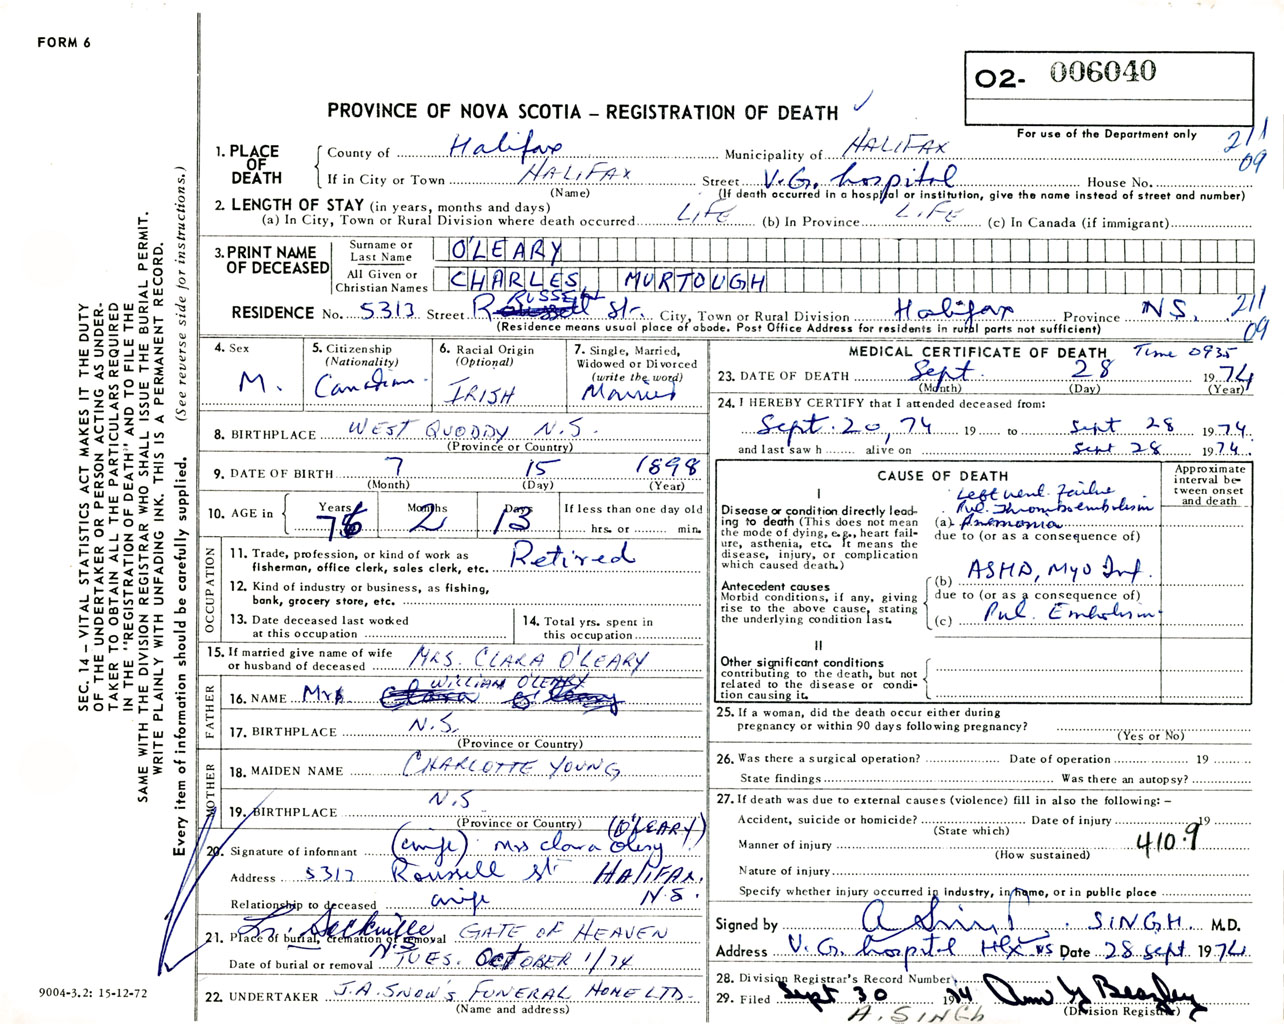 FORM 6
O2- 006040
PROVINCE OF NOVA SCOTIA – REGISTRATION OF DEATH
For use of the Department only
211
09
1. PLACE OF DEATH
County of Halifax Municipality of HALIFAX
If in City or Town HALIFAX Street V.G. hospital House No.
(Name) (If death occurred in a hospital or institution, give the name instead of street and number)
2. LENGTH OF STAY (in years, months and days)
(a) In City, Town or Rural Division where death occurred LIFE (b) In Province LIFE (c) In Canada (if immigrant)
3. PRINT NAME OF DECEASED
Surname or Last Name O'LEARY
All Given or Christian Names CHARLES MURTOUGH
RESIDENCE No. 5313 Street RUSSELL Str. City, Town or Rural Division Halifax Province NS. 211
09
(Residence means usual place of abode. Post Office Address for residents in rural parts not sufficient)
4. Sex M.
5. Citizenship (Nationality) Canadian
6. Racial Origin (Optional) IRISH
7. Single, Married, Widowed or Divorced (write the word) Married
8. BIRTHPLACE WEST QUODDY N.S.
(Province or Country)
9. DATE OF BIRTH 7 15 1898
(Month) (Day) (Year)
10. AGE in Years 76 Months 2 Days 13 If less than one day old
hrs. or min.
OCCUPATION
11. Trade, profession, or kind of work as fisherman, office clerk, sales clerk, etc. Retired
12. Kind of industry or business, as fishing, bank, grocery store, etc.
13. Date deceased last worked at this occupation
14. Total yrs. spent in this occupation
15. If married give name of wife or husband of deceased MRS. CLARA O'LEARY
FATHER
16. NAME Mrs WILLIAM O'LEARY
17. BIRTHPLACE N.S.
(Province or Country)
MOTHER
18. MAIDEN NAME CHARLOTTE YOUNG
19. BIRTHPLACE N.S
(Province or Country) (O'LEARY)
20. Signature of informant (wife) Mrs Clara Olery
Address 5313 Roussell str HALIFAX. N.S.
Relationship to deceased wife
Lr. Sackville N.S
21. Place of burial, cremation or removal GATE OF HEAVEN
Date of burial or removal TUES. OCTOBER 1/74
22. UNDERTAKER J.A. SNOW'S FUNERAL HOME LTD.
(Name and address)
MEDICAL CERTIFICATE OF DEATH Time 0935
23. DATE OF DEATH Sept. 28 1974
(Month) (Day) (Year)
24. I HEREBY CERTIFY that I attended deceased from:
Sept. 20, 74 19 to Sept 28 1974
and last saw h alive on Sept 28 1974
CAUSE OF DEATH
Approximate interval between onset and death
I
Disease or condition directly leading to death (This does not mean the mode of dying, e.g., heart failure, asthenia, etc. It means the disease, injury, or complication which caused death.)
Left vent. Failure
Pul. Thromboembolism
(a) Pnemonia
due to (or as a consequence of)
Antecedent causes
Morbid conditions, if any, giving rise to the above cause, stating the underlying condition last.
(b) ASHD, Myo Inf.
due to (or as a consequence of)
(c) Pul. Embolism
II
Other significant conditions contributing to the death, but not related to the disease or condition causing it.
25. If a woman, did the death occur either during pregnancy or within 90 days following pregnancy?
(Yes or No)
26. Was there a surgical operation? Date of operation 19
State findings Was there an autopsy?
27. If death was due to external causes (violence) fill in also the following: –
Accident, suicide or homicide? Date of injury 19
(State which)
Manner of injury 410.9
(How sustained)
Nature of injury
Specify whether injury occurred in industry, in home, or in public place
Signed by A Singh SINGH M.D.
Address V.G. hospital Hfx NS Date 28 sept 1974
28. Division Registrar's Record Number
29. Filed Sept 30 1974
(Division Registrar)
A. SINGH
SEC. 14 – VITAL STATISTICS ACT MAKES IT THE DUTY
OF THE UNDERTAKER OR PERSON ACTING AS UNDER-
TAKER TO OBTAIN ALL THE PARTICULARS REQUIRED
IN THE "REGISTRATION OF DEATH" AND TO FILE THE
SAME WITH THE DIVISION REGISTRAR WHO SHALL ISSUE THE BURIAL PERMIT.
WRITE PLAINLY WITH UNFADING INK. THIS IS A PERMANENT RECORD.
Every item of information should be carefully supplied. (See reverse side for instructions.)
9004-3.2: 15-12-72